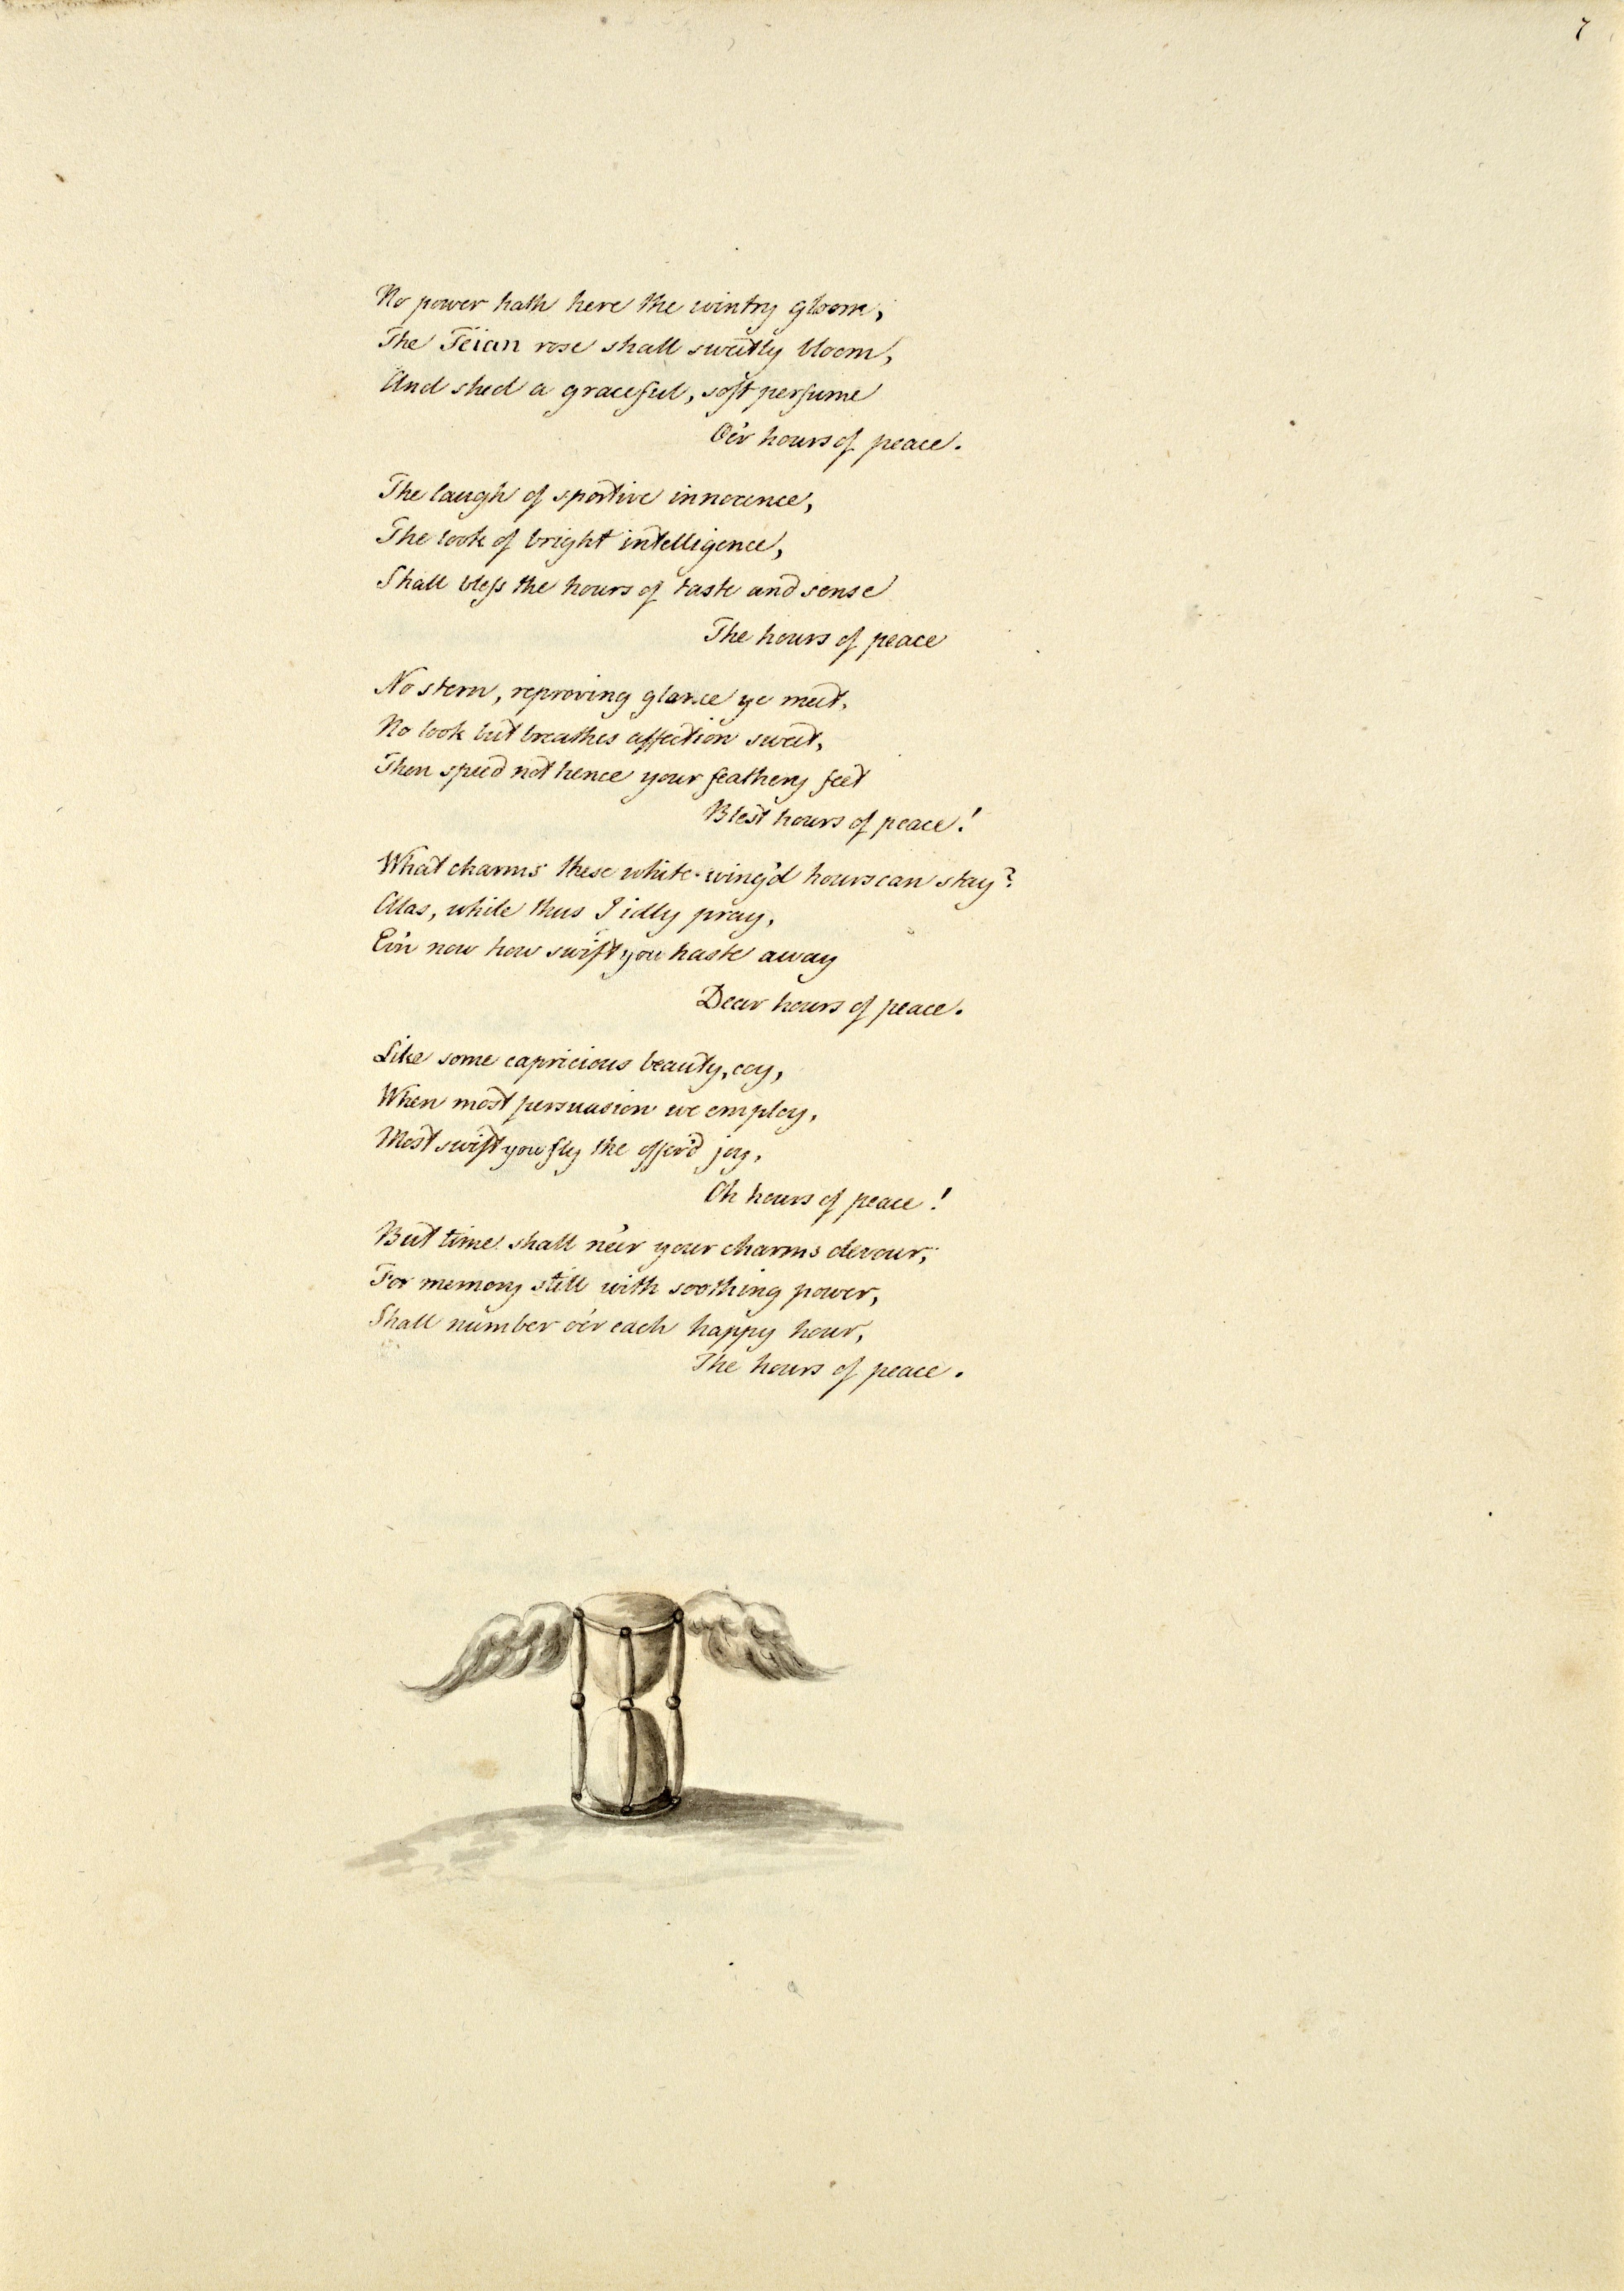 7
No power hath here the wintry gloom,
The Tëian rose shall sweetly bloom,
And shed a graceful, soft perfume
O'er hours of peace.
The laugh of sportive innocence,
The look of bright intelligence,
Shall bless the hours of taste and sense
The hours of peace
No stern, reproving glance ye meet,
No look but breathes affection sweet,
Then speed not hence your feathery feet
Blest hours of peace!
What charms these white-wing'd hours can stay?
Alas, while thus I idly pray,
E'en now how swift you haste away
Dear hours of peace.
Like some capricious beauty, coy,
When most persuasion we employ,
Most swift you fly the offer'd joy,
Oh hours of peace!
But time shall ne'er your charms devour,
For memory still with soothing power,
Shall number o'er each happy hour,
The hours of peace.